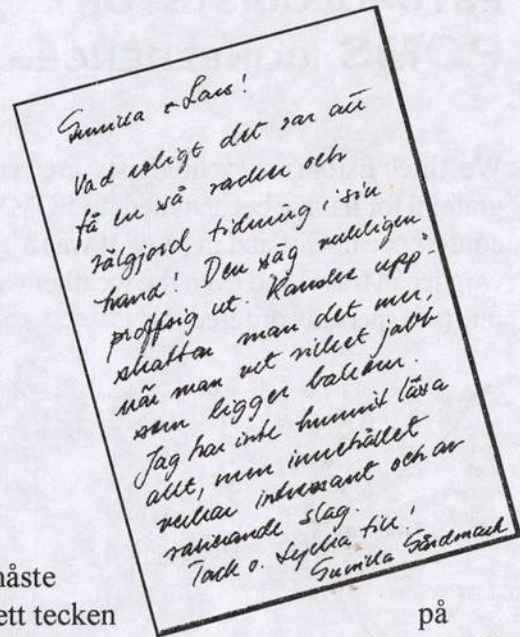 Gunilla & Lars!
Vad roligt det var att
få en så vacker och
välgjord tidning, i sin
hand! Den såg verkligen
proffsig ut. Kanske upp-
skattar man det mer,
när man vet vilket jobb
som ligger bakom.
Jag har inte hunnit läsa
allt, men innehållet
verkar intressant och av
varierande slag.
Tack o. Lycka till!
Gunilla Gårdmark
måste
ett tecken på